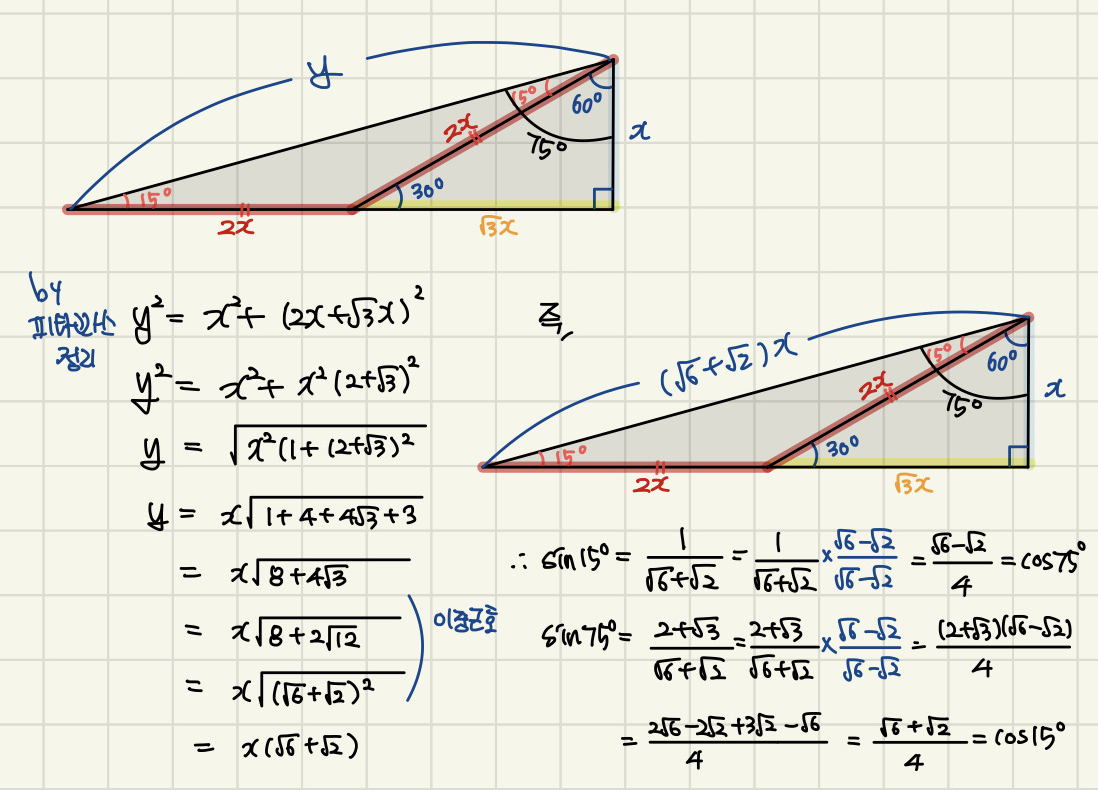 y
15°
60°
2x
x
75°
15°
30°
2x
√3x
by
피타고라스
정리
y² = x² + (2x+√3x)²
y² = x² + x²(2+√3)²
y = √(x²(1+(2+√3)²
y = x√(1+4+4√3+3)
= x√(8+4√3)
= x√(8+2√12)
이중근호
= x√((√6+√2)²)
= x(√6+√2)
즉,
(√6+√2)x
15°
60°
2x
x
75°
15°
30°
2x
√3x
∴ sin15° = 1/(√6+√2) = 1/(√6+√2) × (√6-√2)/(√6-√2) = (√6-√2)/4 = cos75°
sin75° = (2+√3)/(√6+√2) = (2+√3)/(√6+√2) × (√6-√2)/(√6-√2) = (2+√3)(√6-√2)/4
= (2√6-2√2+3√2-√6)/4 = (√6+√2)/4 = cos15°